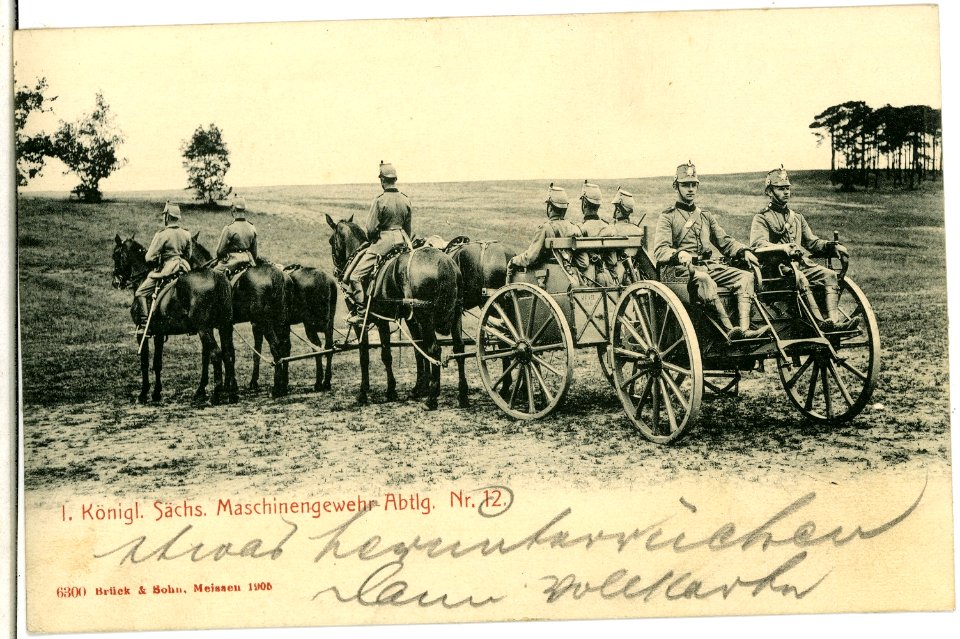 I. Königl. Sächs. Maschinengewehr-Abtlg. Nr. 12.
etwas herunterrücken
Dann voll Karte
6300 Brück & Sohn, Meissen 1905